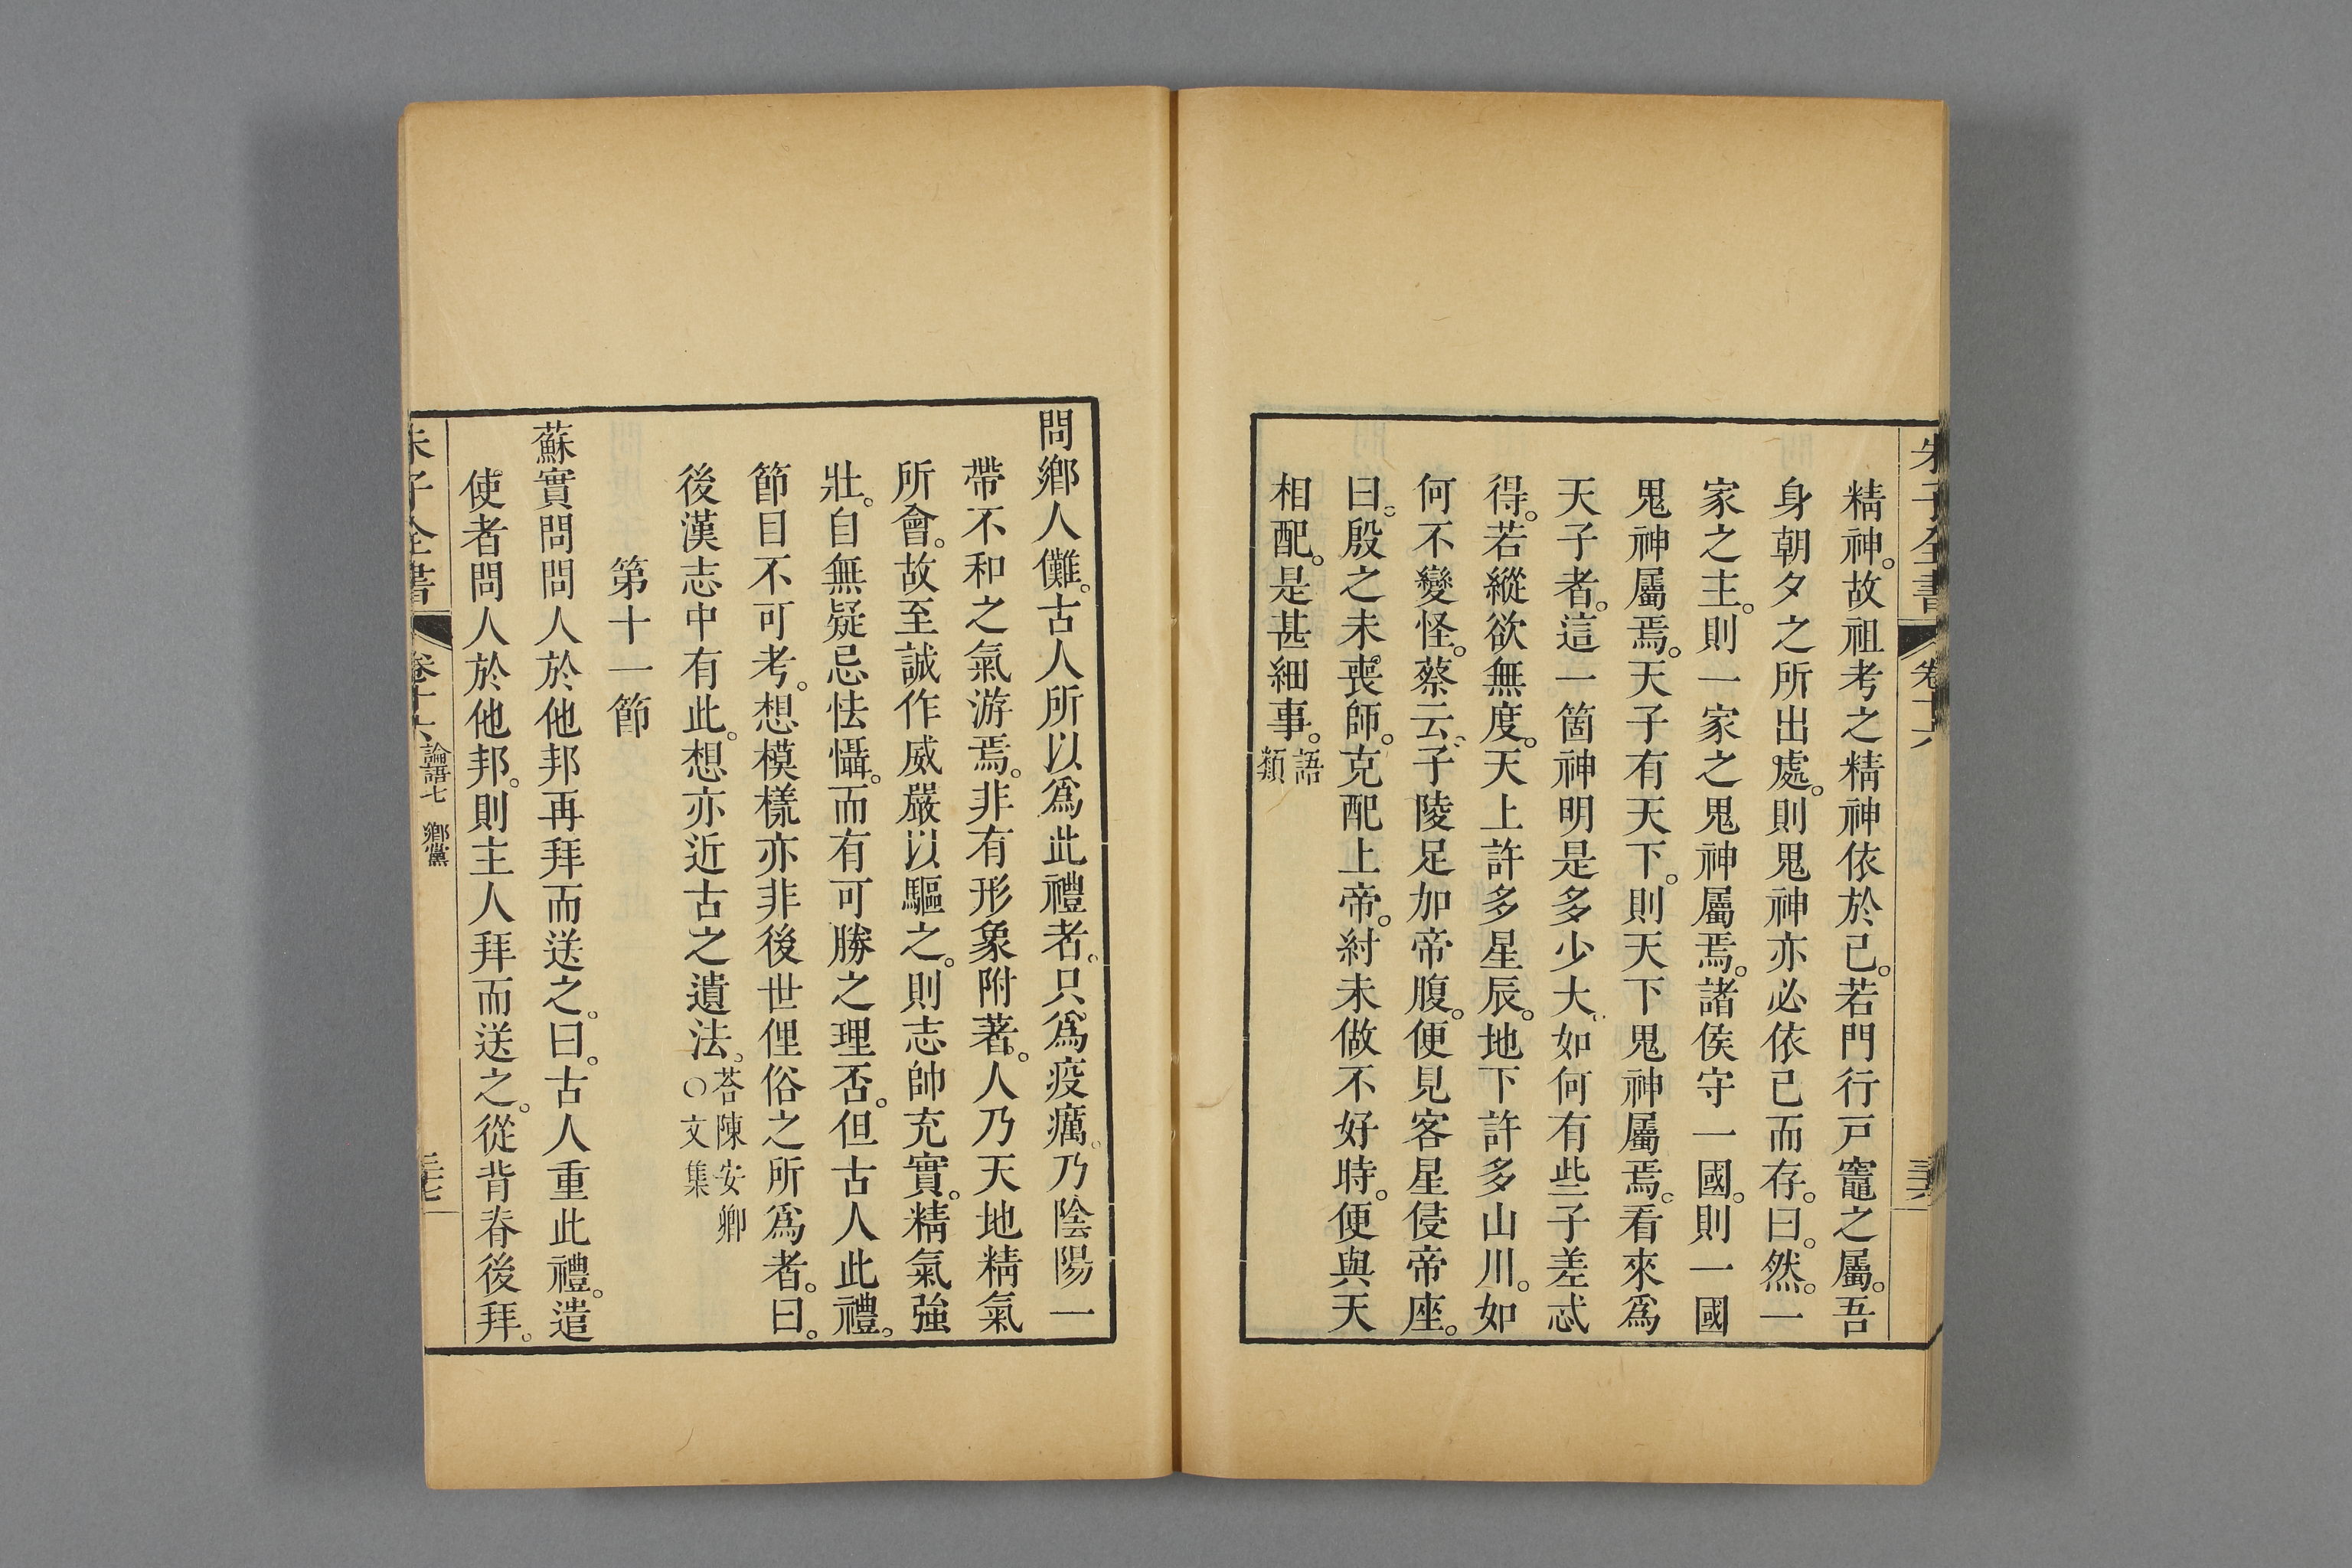 朱子全書 卷十六
精神。故祖考之精神依於己。若門行戸竈之屬。吾
身朝夕之所出處。則鬼神亦必依己而存。曰。然。一
家之主。則一家之鬼神屬焉。諸侯守一國。則一國
鬼神屬焉。天子有天下。則天下鬼神屬焉。看來爲
天子者。這一箇神明是多少大。如何有些子差忒
得。若縱欲無度。天上許多星辰。地下許多山川。如
何不變怪。蔡云。子陵足加帝腹。便見客星侵帝座。
曰。殷之未喪師。克配上帝。紂未做不好時。便與天
相配。是甚細事。語類
問鄉人儺。古人所以爲此禮者。只爲疫癘。乃陰陽一
帶不和之氣游焉。非有形象附著。人乃天地精氣
所會。故至誠作威嚴以驅之。則志帥充實。精氣強
壯。自無疑忌怯懾。而有可勝之理否。但古人此禮。
節目不可考。想模樣亦非後世俚俗之所爲者。曰。
後漢志中有此。想亦近古之遺法。答陳安卿○文集
第十一節
蘇實問問人於他邦再拜而送之。曰。古人重此禮。遣
使者問人於他邦。則主人拜而送之。從背脊後拜。
朱子全書 卷十六 論語七 鄉黨